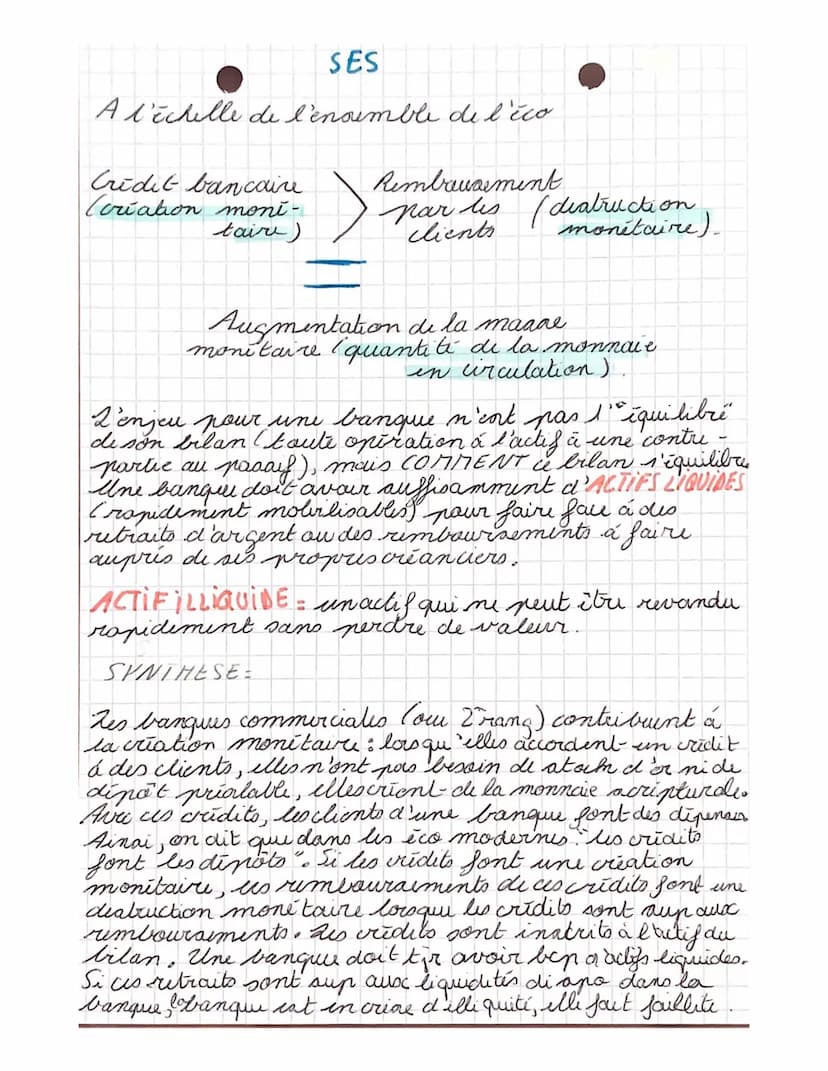 SES
A l'échelle de l'ensemble de l'éco
Crédit bancaire > Remboursement
(création moné- par les (destruction
taire) clients monétaire).
=
Augmentation de la masse
monétaire (quantité de la monnaie
en circulation).
L'enjeu pour une banque n'est pas l'"équilibre"
de son bilan (toute opération à l'actif à une contre-
partie au passif), mais COMMENT ce bilan s'équilibre.
Une banque doit avoir suffisamment d'ACTIFS LIQUIDES
(rapidement mobilisables) pour faire face à des
retraits d'argent ou des remboursements à faire
auprès de ses propres créanciers.
ACTIF iLLiQUiDE = un actif qui ne peut être revandu
rapidement sans perdre de valeur.
SYNTHESE =
Les banques commerciales (ou 2nd rang) contribuent à
la création monétaire : lorsqu'elles accordent un crédit
à des clients, elles n'ont pas besoin de stock d'or ni de
dépôt préalable, elles créent de la monnaie scripturale.
Avec ces crédits, les clients d'une banque font des dépenses
Ainsi, on dit que dans les éco modernes : "les crédits
font les dépôts". Si les crédits font une création
monétaire, les remboursements de ces crédits font une
destruction monétaire lorsque les crédits sont sup aux
remboursements. Les crédits sont inscrits à l'actif du
bilan. Une banque doit tjr avoir bcp d'actifs liquides.
Si ces retraits sont sup aux liquidités dispo dans la
banque, la banque est en crise d'illiquité, elle fait faillite.